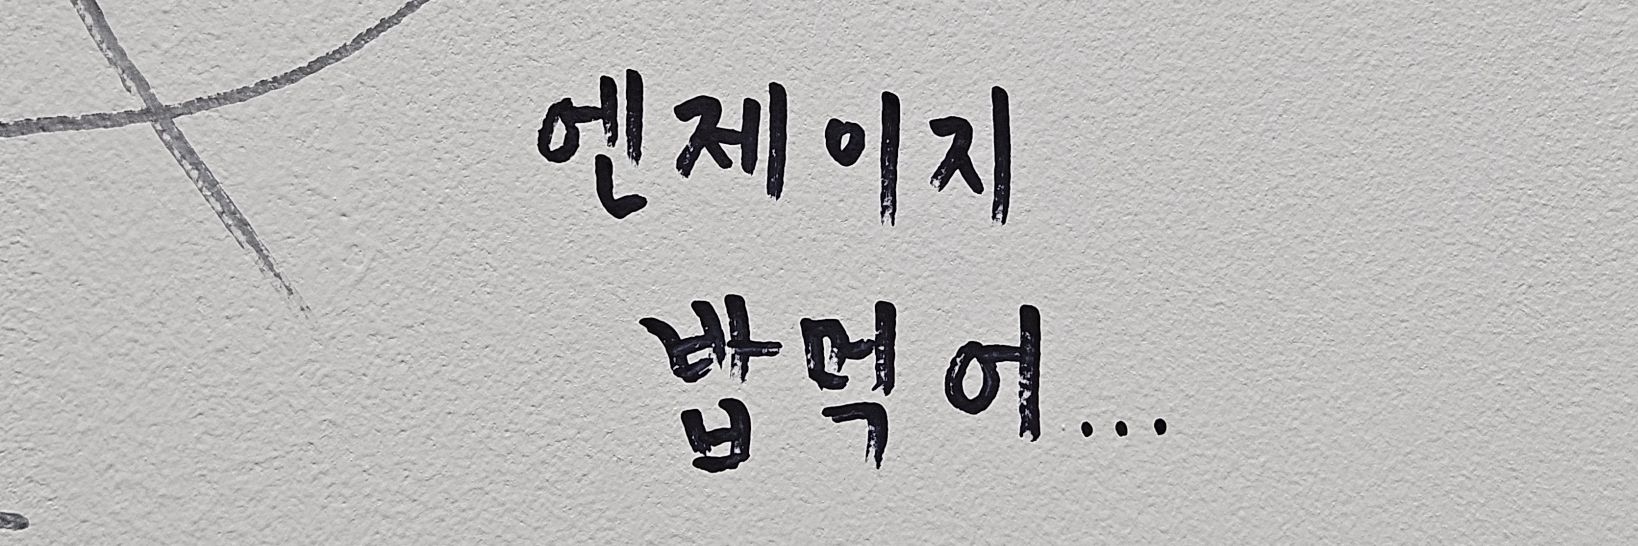 엔제이지
밥먹어...